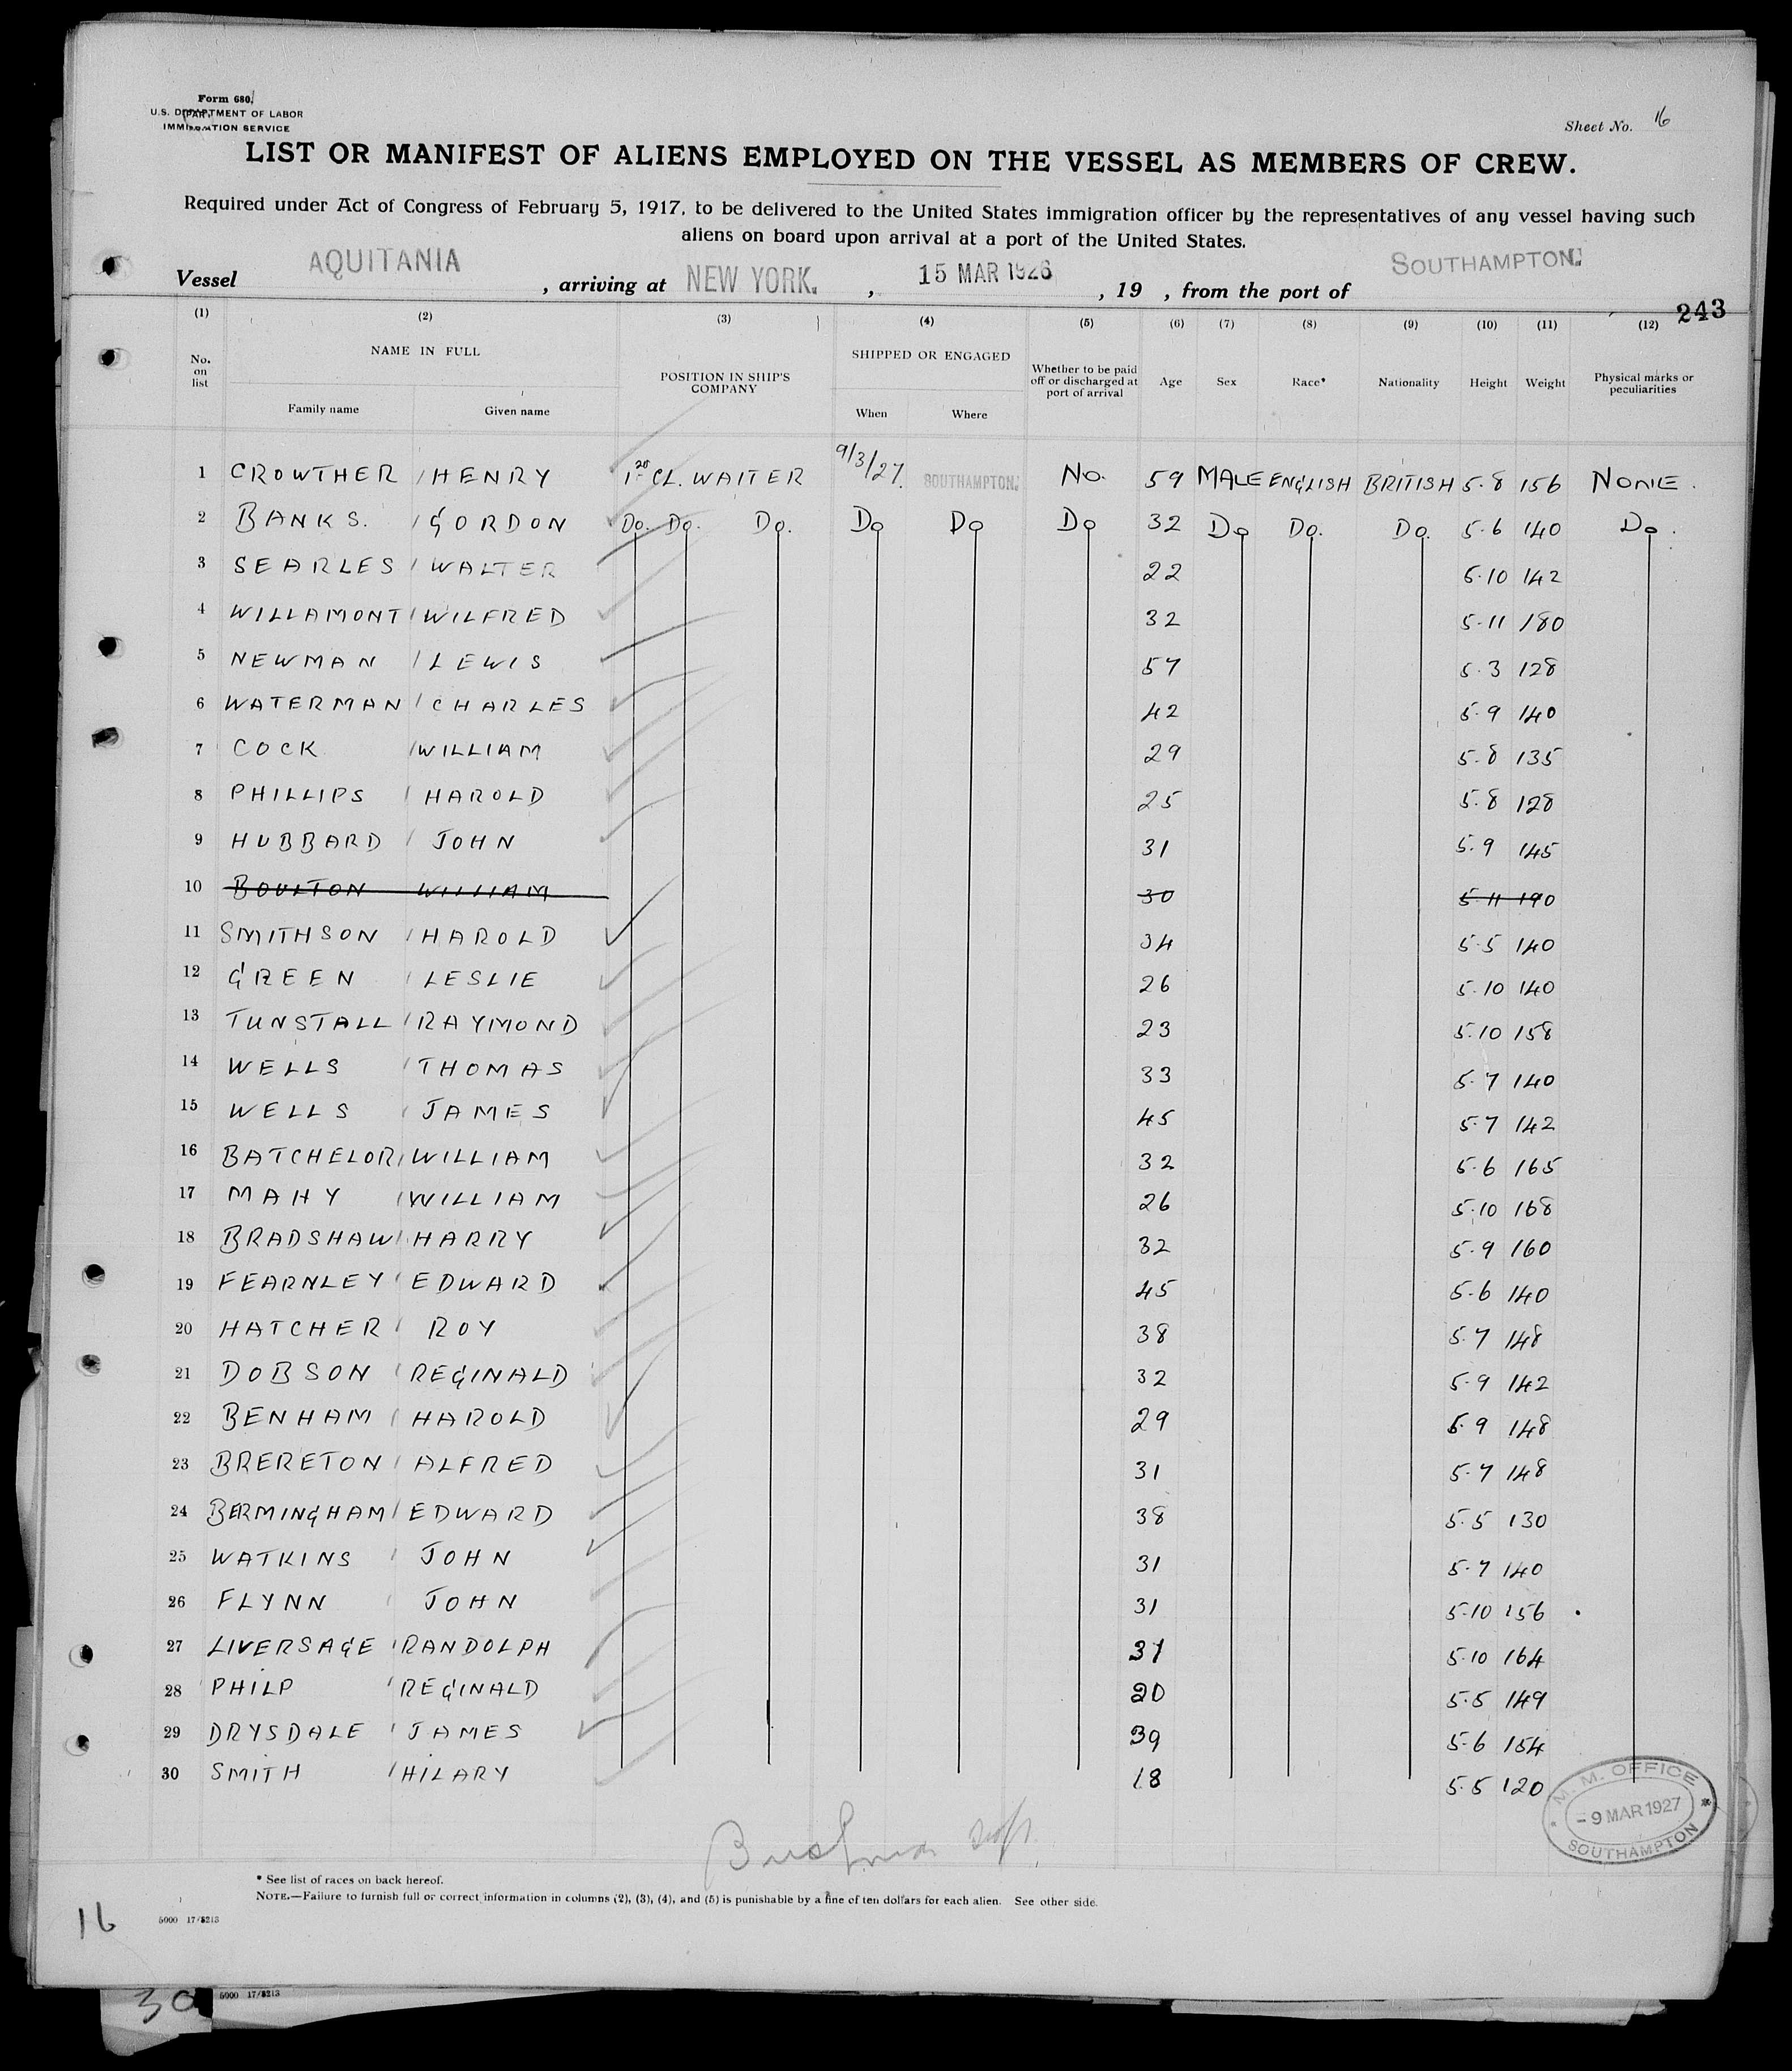 Form 680
U.S. DEPARTMENT OF LABOR
IMMIGRATION SERVICE
Sheet No. 16
LIST OR MANIFEST OF ALIENS EMPLOYED ON THE VESSEL AS MEMBERS OF CREW.
Required under Act of Congress of February 5, 1917, to be delivered to the United States immigration officer by the representatives of any vessel having such
aliens on board upon arrival at a port of the United States.
Vessel AQUITANIA, arriving at NEW YORK., 15 MAR 1926, 19 , from the port of SOUTHAMPTON.
243
(1) (2) (3) (4) (5) (6) (7) (8) (9) (10) (11) (12)
No. on list NAME IN FULL POSITION IN SHIP'S COMPANY SHIPPED OR ENGAGED Whether to be paid off or discharged at port of arrival Age Sex Race* Nationality Height Weight Physical marks or peculiarities
Family name Given name When Where
1 CROWTHER HENRY CL. WAITER 9/3/27. SOUTHAMPTON. No. 59 MALE ENGLISH BRITISH 5.8 156 NONE.
2 BANKS. GORDON Do. Do. Do. Do Do Do 32 Do Do. Do. 5.6 140 Do.
3 SEARLES WALTER 22 5.10 142
4 WILLAMONT WILFRED 32 5.11 180
5 NEWMAN LEWIS 57 5.3 128
6 WATERMAN CHARLES 42 5.9 140
7 COCK WILLIAM 29 5.8 135
8 PHILLIPS HAROLD 25 5.8 128
9 HUBBARD JOHN 31 5.9 145
10 BOULTON WILLIAM 30 5.11 190
11 SMITHSON HAROLD 34 5.5 140
12 GREEN LESLIE 26 5.10 140
13 TUNSTALL RAYMOND 23 5.10 158
14 WELLS THOMAS 33 5.7 140
15 WELLS JAMES 45 5.7 142
16 BATCHELOR WILLIAM 32 5.6 165
17 MAHY WILLIAM 26 5.10 168
18 BRADSHAW HARRY 32 5.9 160
19 FEARNLEY EDWARD 45 5.6 140
20 HATCHER ROY 38 5.7 148
21 DOBSON REGINALD 32 5.9 142
22 BENHAM HAROLD 29 5.9 148
23 BRERETON ALFRED 31 5.7 148
24 BERMINGHAM EDWARD 38 5.5 130
25 WATKINS JOHN 31 5.7 140
26 FLYNN JOHN 31 5.10 156
27 LIVERSAGE RANDOLPH 31 5.10 164
28 PHILP REGINALD 20 5.5 149
29 DRYSDALE JAMES 39 5.6 154
30 SMITH HILARY 18 5.5 120
M. M. OFFICE
- 9 MAR 1927
SOUTHAMPTON
* See list of races on back hereof.
NOTE.—Failure to furnish full or correct information in columns (2), (3), (4), and (5) is punishable by a fine of ten dollars for each alien. See other side.
16
5000 17/8213
30
5000 17/8213